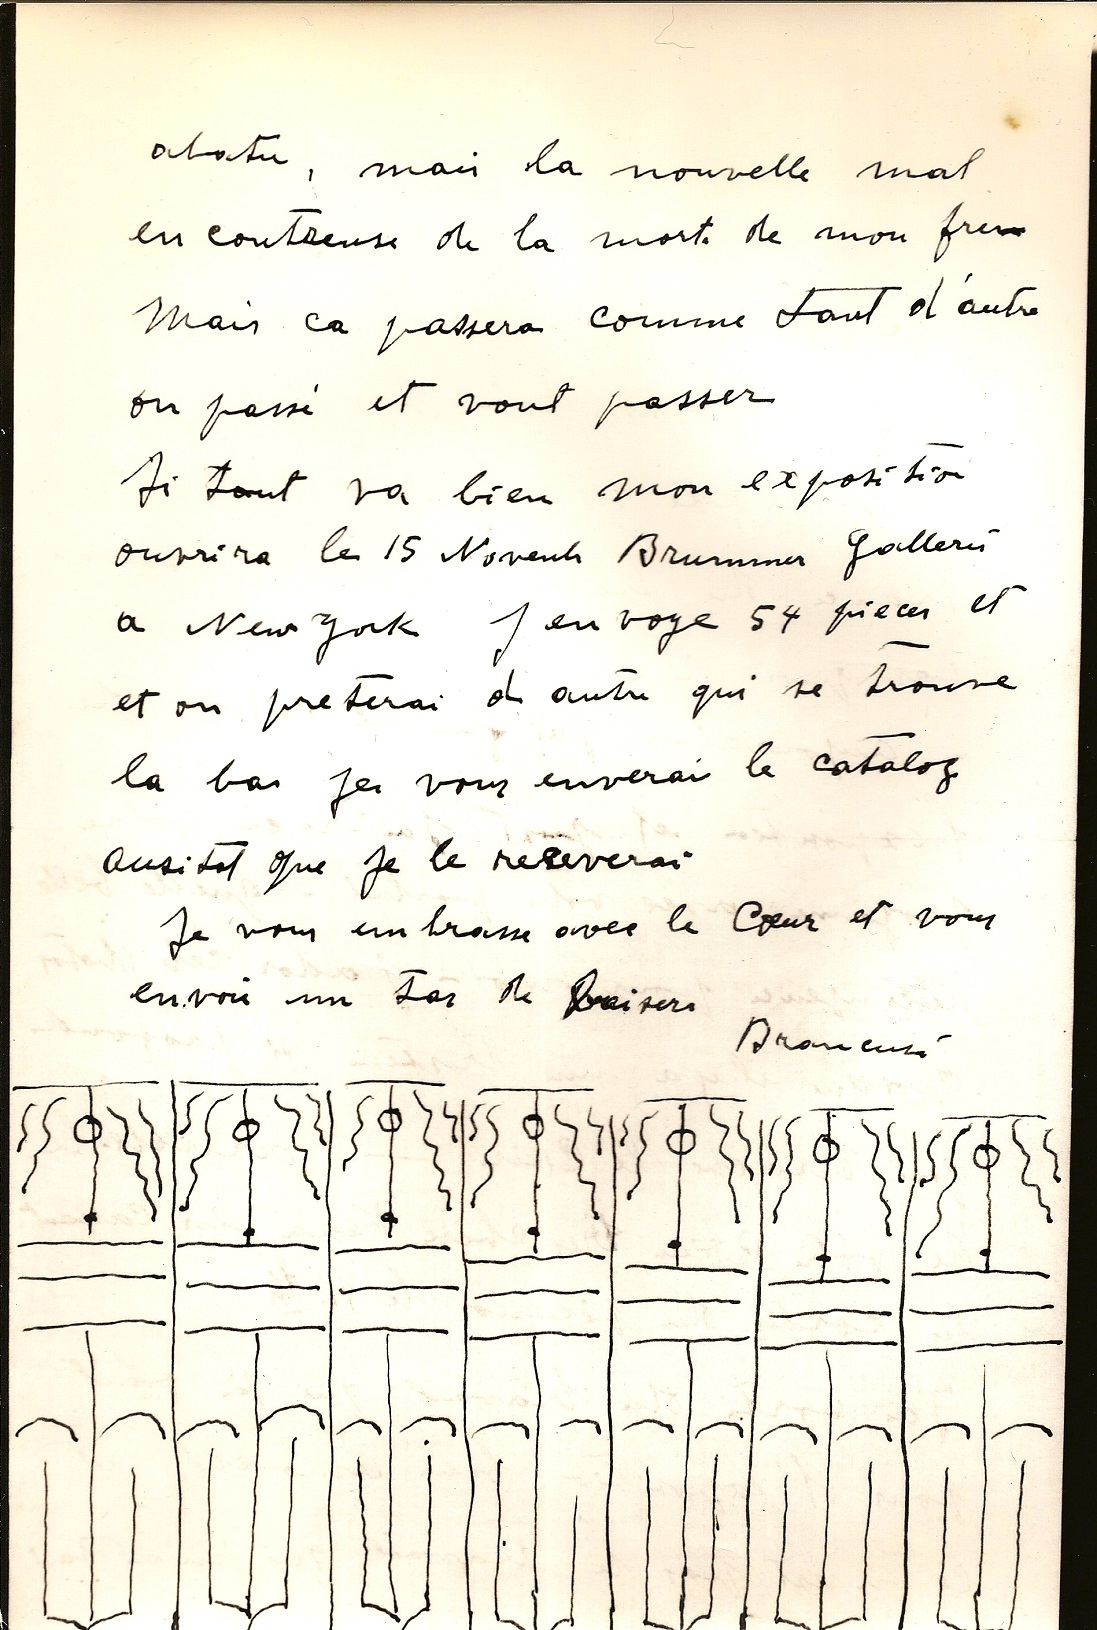 abatu, mais la nouvelle mal
encontreuse de la mort de mon frere
Mais ca passera comme tant d'autre
on passé et vont passer
Si tout va bien mon exposition
ouvrira le 15 Novemb Brummer Galleri
a New York J envoye 54 pieces et
et on preterai d autre qui se trouve
la bas Je vous enverai le catalog
ausitot que je le reseverai
Je vous embrasse avec le Cœur et vous
envoi un tas de baisers
Brancusi